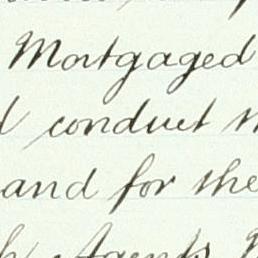 Mortgaged
conduct
and for the
Agents